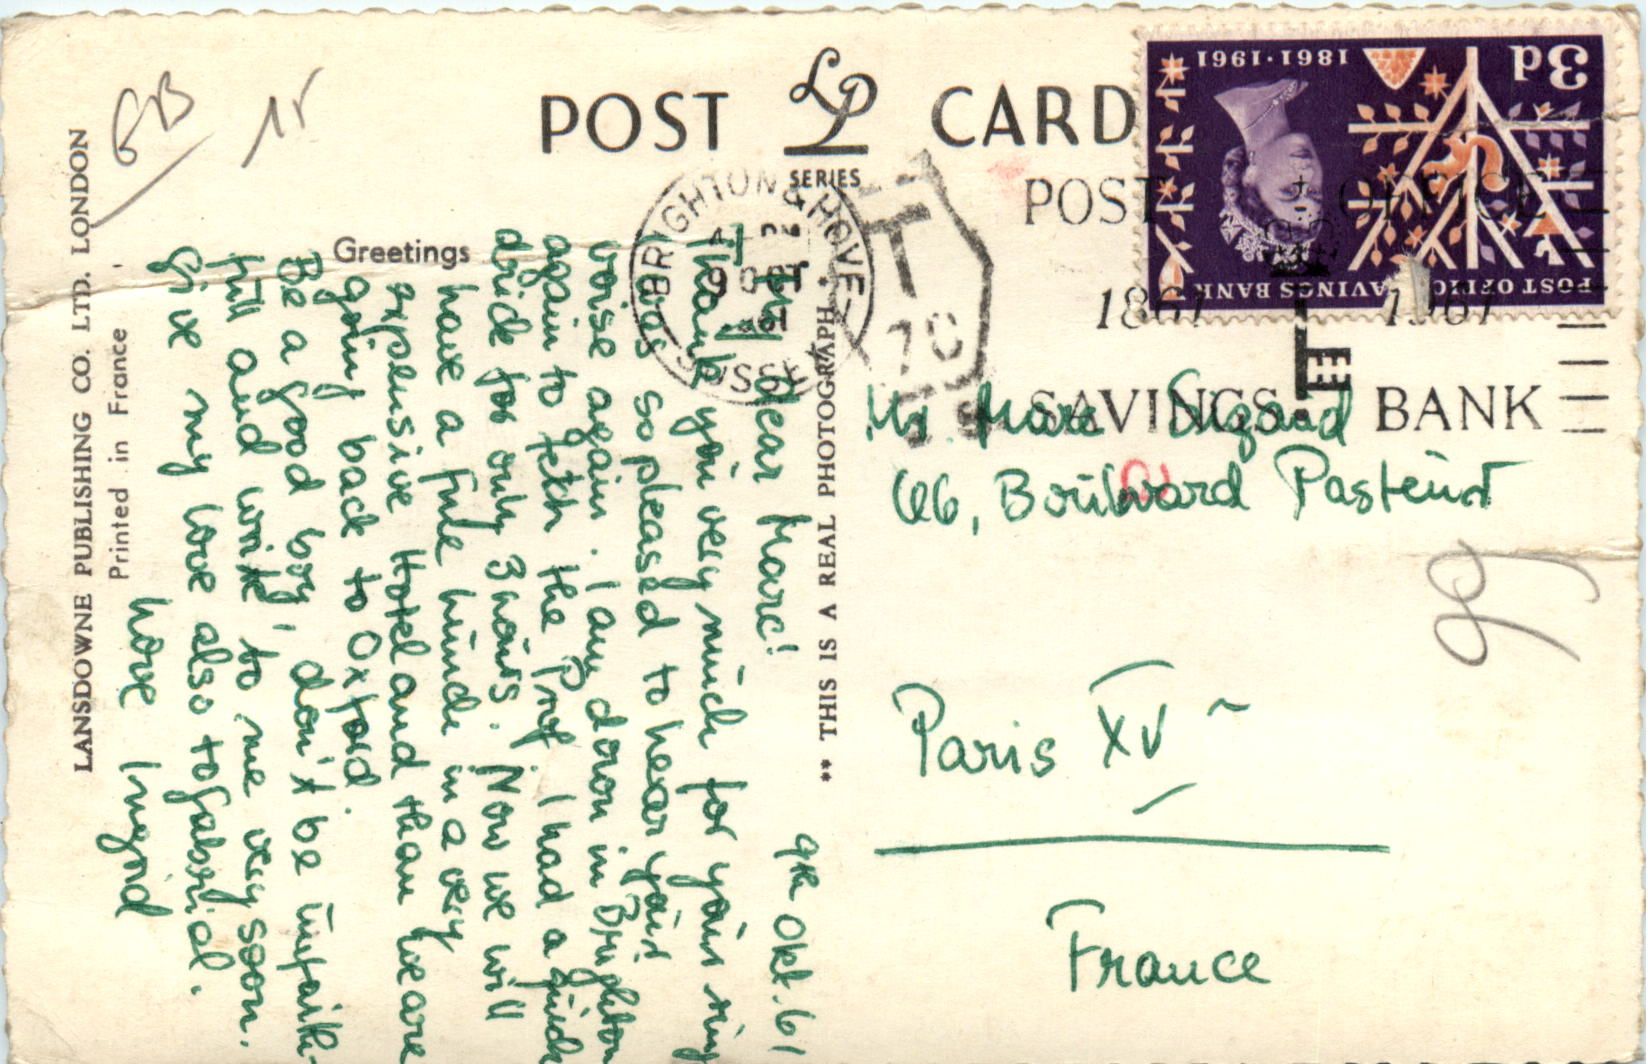 POST CARD
LP
SERIES
Greetings
LANSDOWNE PUBLISHING CO. LTD. LONDON
Printed in France
** THIS IS A REAL PHOTOGRAPH
GB
3d
1861·1961
POST OFFICE SAVINGS BANK
BRIGHTON & HOVE
SUSSEX
9 OCT
1961
T
POST OFFICE
1861 1961
SAVINGS BANK
9th Okt. 61
My dear Marc!
Thank you very much for your ring
I was so pleased to hear your
voise again. I am down in Brighton
again to fetch the Prof. I had a quick
drive for only 3 hours. Now we will
have a fine lunch in a very
expensive Hotel and than we are
going back to Oxford.
Be a good boy, don't be unfaith-
full and write to me very soon.
Give my love also to Gabriel.
Love Ingrid
Mr. Marc
66, Boulward Pasteur
Paris XV
France